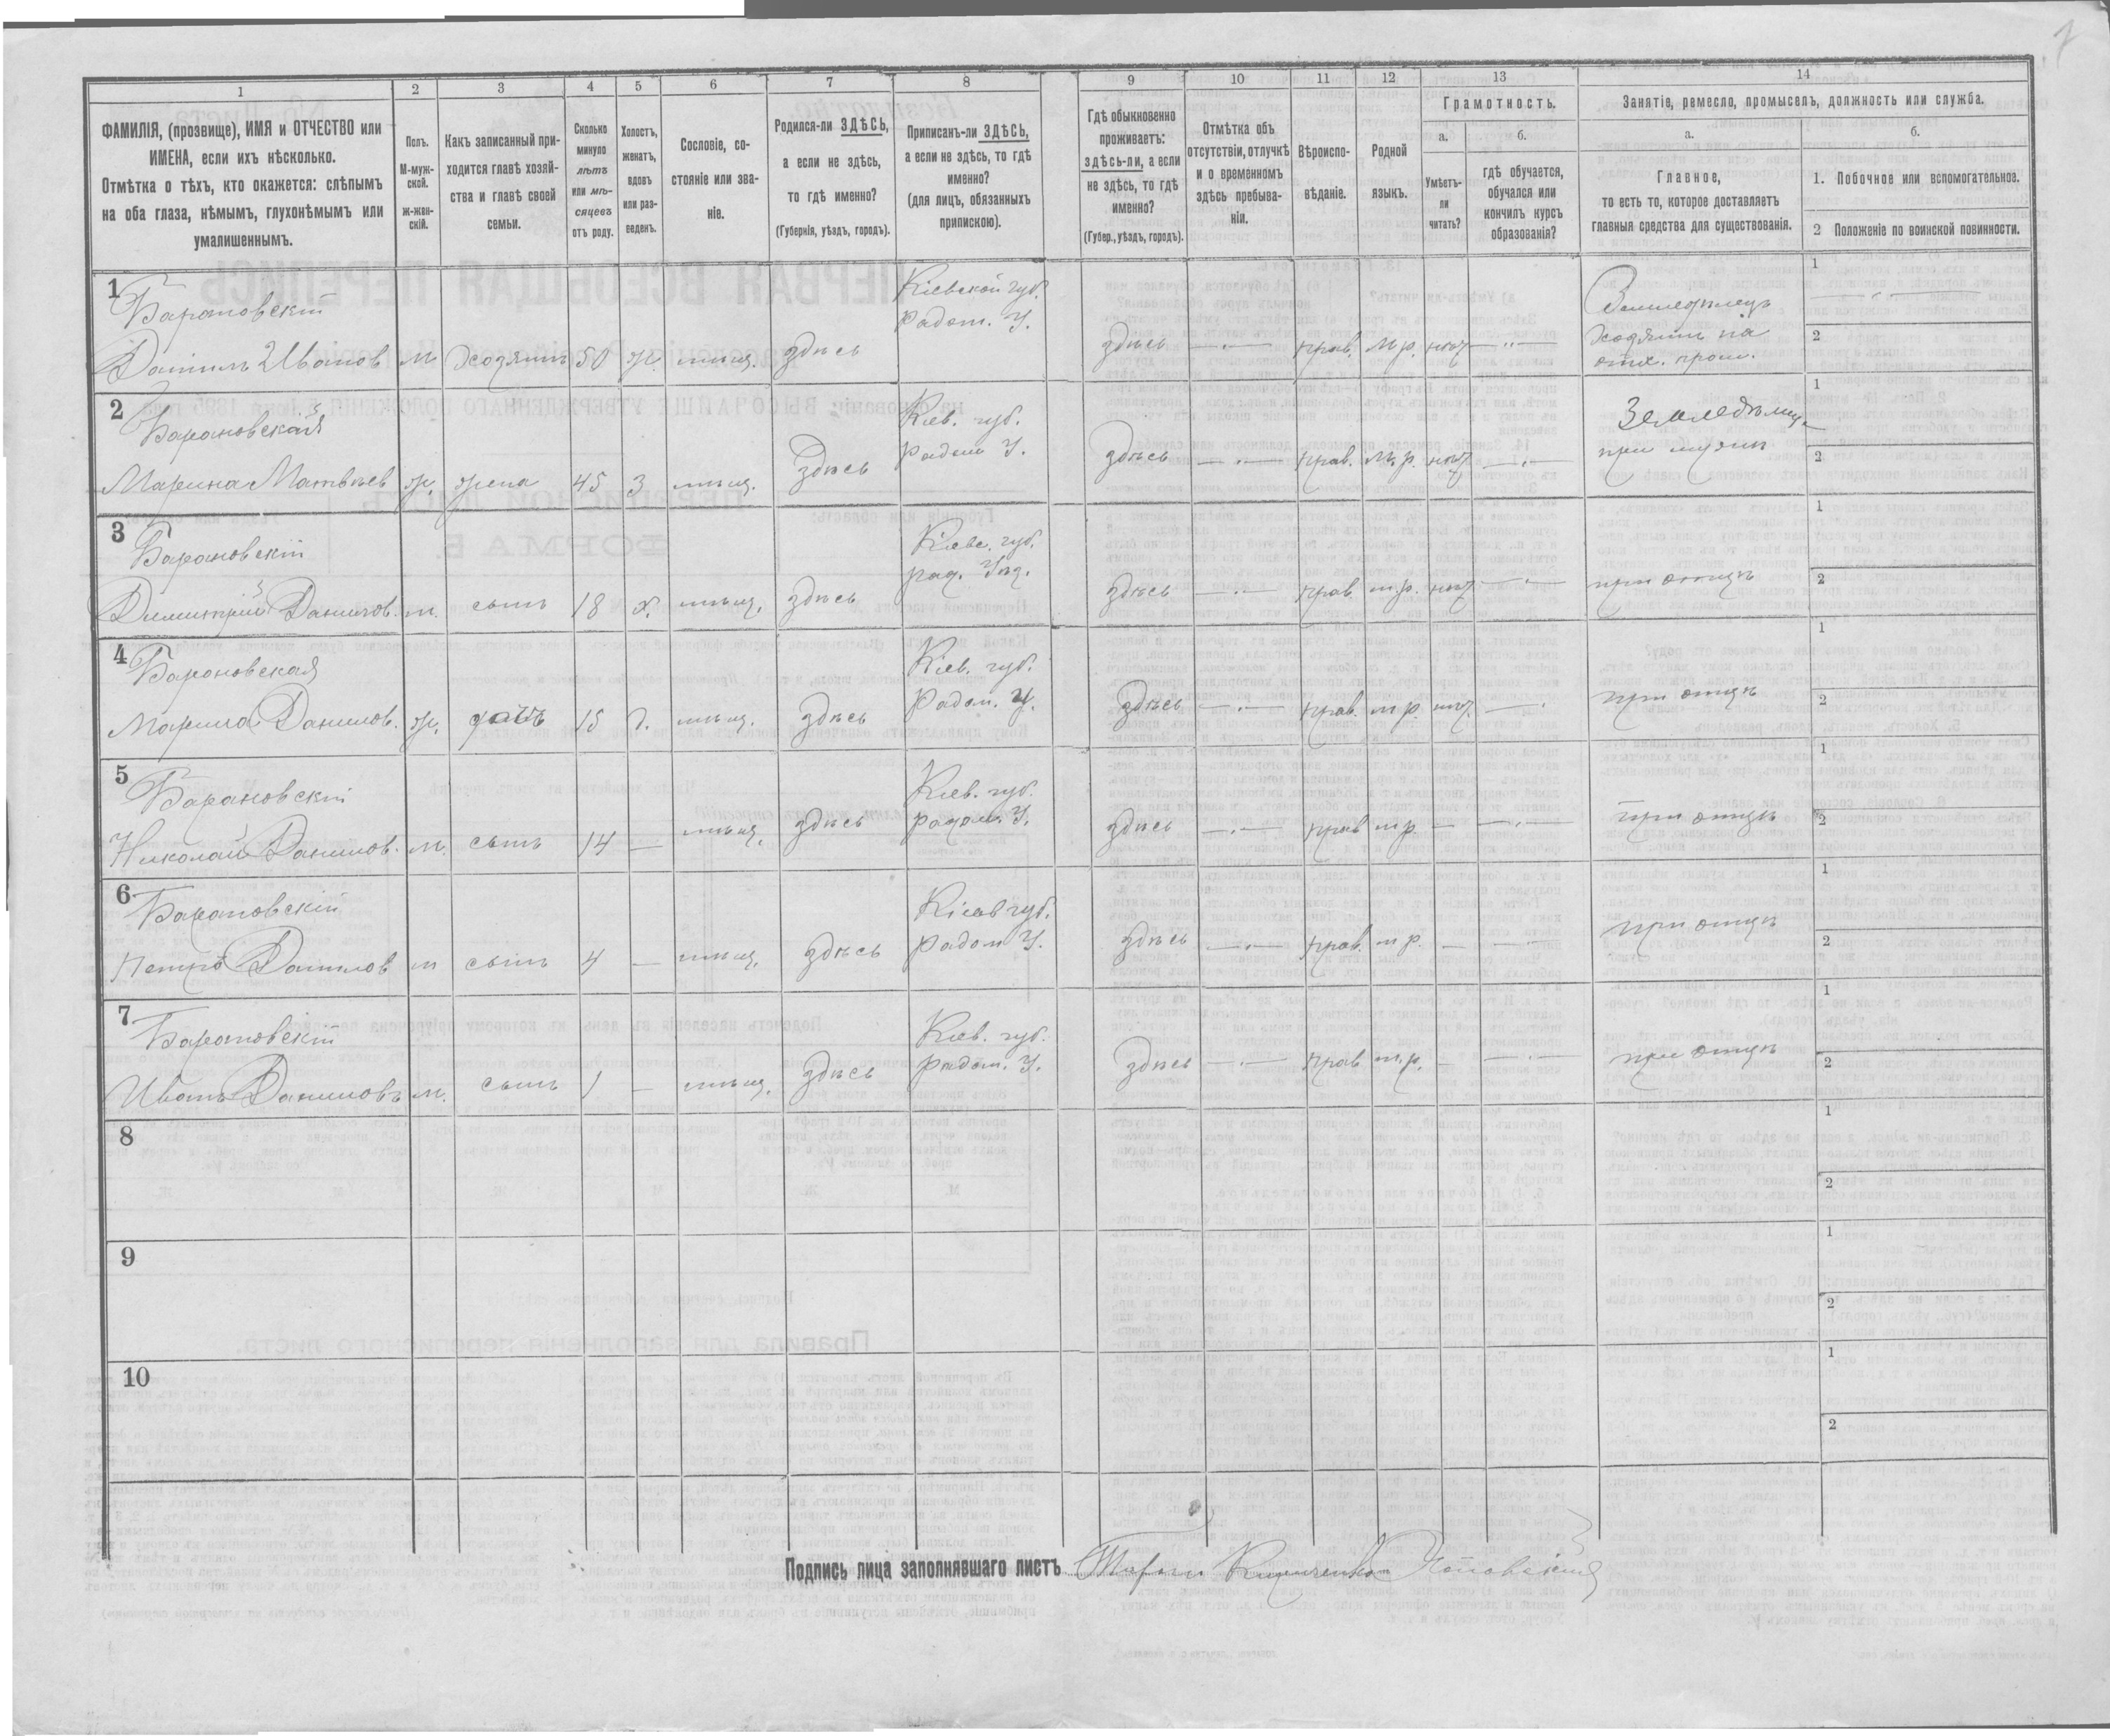 1
2
3
4
5
6
7
8
9
10
11
12
13
14
ФАМИЛІЯ, (прозвище), ИМЯ и ОТЧЕСТВО или
ИМЕНА, если ихъ нѣсколько.
Отмѣтка о тѣхъ, кто окажется: слѣпымъ
на оба глаза, нѣмымъ, глухонѣмымъ или
умалишеннымъ.
Полъ.
М-муж-
ской.
ж-жен-
скій.
Какъ записанный при-
ходится главѣ хозяй-
ства и главѣ своей
семьи.
Сколько
минуло
лѣтъ
или мѣ-
сяцевъ
отъ роду.
Холостъ,
женатъ,
вдовъ
или раз-
веденъ.
Сословіе, со-
стояніе или зва-
ніе.
Родился-ли ЗДѢСЬ,
а если не здѣсь,
то гдѣ именно?
(Губернія, уѣздъ, городъ).
Приписанъ-ли ЗДѢСЬ,
а если не здѣсь, то гдѣ
именно?
(для лицъ, обязанныхъ
припискою).
Гдѣ обыкновенно
проживаетъ:
здѣсь-ли, а если
не здѣсь, то гдѣ
именно?
(Губер., уѣздъ, городъ).
Отмѣтка объ
отсутствіи, отлучкѣ
и о временномъ
здѣсь пребыва-
ніи.
Вѣроиспо-
вѣданіе.
Родной
языкъ.
Грамотность.
а.
Умѣетъ-
ли
читать?
б.
гдѣ обучается,
обучался или
кончилъ курсъ
образованія?
Занятіе, ремесло, промыселъ, должность или служба.
а.
Главное,
то есть то, которое доставляетъ
главныя средства для существованія.
б.
1. Побочное или вспомогательное.
2 Положеніе по воинской повинности.
1
Барановскій
Кіевской губ.
Радом. У.
Земледѣлецъ
Ходятъ на
отх. пром.
1
2
Данилъ Ивановъ м Хозяинъ 50 ж. мѣщ. здѣсь здѣсь — прав. м.р. нѣт —
2
Барановская
Кіев. губ.
Радом У.
Земледѣлица
при мужѣ
1
2
Марина Матвѣев ж. жена 45 з мѣщ. здѣсь здѣсь — прав. м.р. нѣт —
3
Барановскій
Кіевс. губ.
рад. Уѣзд.
1
2
Димитрій Данилов. м. сынъ 18 х. мѣщ. здѣсь здѣсь — прав. м.р. нѣт — при отцѣ
4
Барановская
Кіев. губ.
Радом. У.
1
2
Марина Данилов. ж. дочь 15 д. мѣщ. здѣсь здѣсь — прав. м р. нѣт. — при отцѣ
5
Барановскій
Кіев. губ.
радом. У.
1
2
Николай Данилов. м. сынъ 14 — мѣщ. здѣсь здѣсь — прав м р. — — при отцѣ
6
Барановскій
Кіев губ.
радом У.
1
2
Петръ Данилов м сынъ 4 — мѣщ. здѣсь здѣсь — прав. м р. — — при отцѣ
7
Барановскій
Кіев. губ.
радом. У.
1
2
Иванъ Даниловъ м. сынъ 1 — мѣщ. здѣсь здѣсь — прав м.р. — — при отцѣ
8
1
2
9
1
2
10
1
2
Подпись лица заполнявшаго листъ